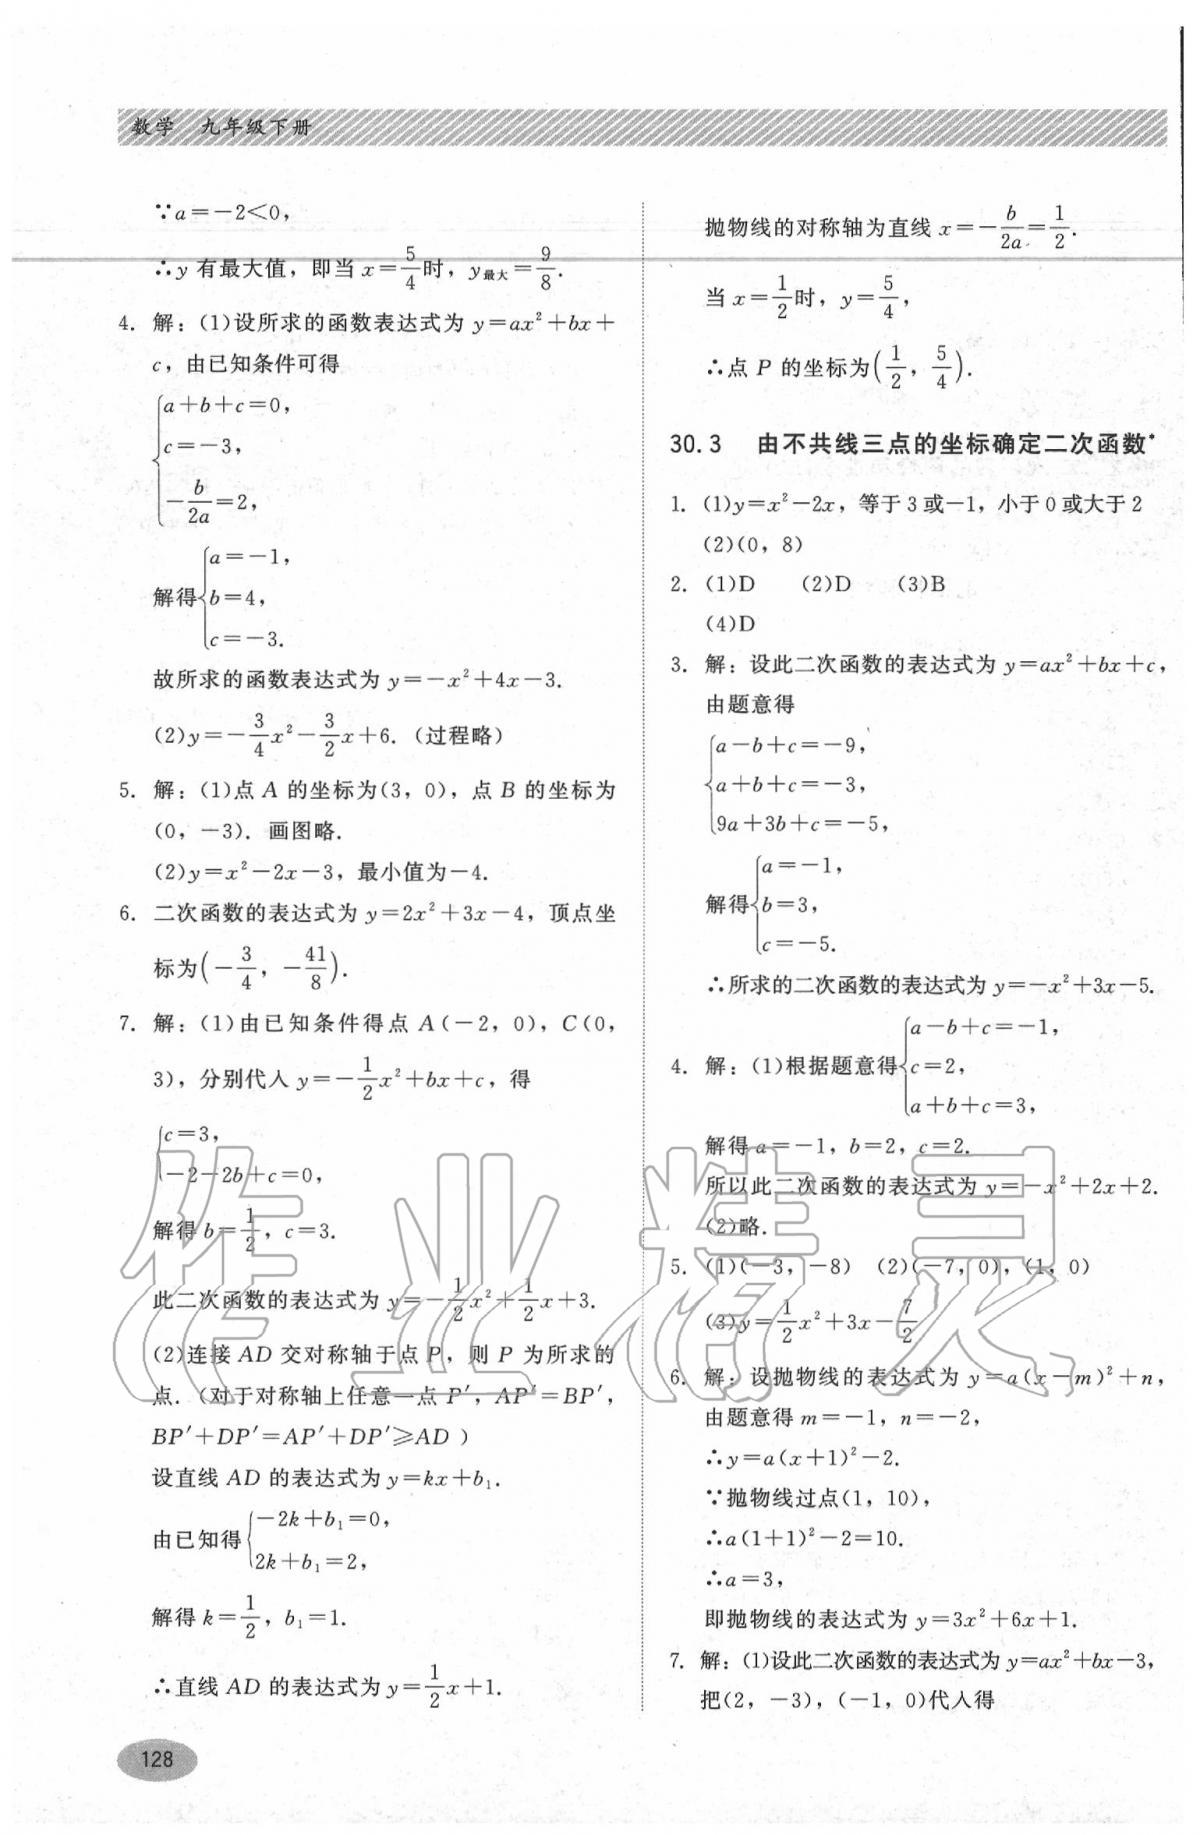 数学　九年级下册
∵a=-2<0，
∴y 有最大值，即当 x=5/4时，y最大=9/8.
4. 解：(1)设所求的函数表达式为 y=ax²+bx+
c，由已知条件可得
{a+b+c=0，
c=-3，
-b/2a=2，
解得{a=-1，
b=4，
c=-3.
故所求的函数表达式为 y=-x²+4x-3.
(2)y=-3/4x²-3/2x+6.（过程略）
5. 解：(1)点 A 的坐标为(3，0)，点 B 的坐标为
(0，-3). 画图略.
(2)y=x²-2x-3，最小值为-4.
6. 二次函数的表达式为 y=2x²+3x-4，顶点坐
标为(-3/4，-41/8).
7. 解：(1)由已知条件得点 A(-2，0)，C(0，
3)，分别代入 y=-1/2x²+bx+c，得
{c=3，
-2-2b+c=0，
解得 b=1/2，c=3.
此二次函数的表达式为 y=-1/2x²+1/2x+3.
(2)连接 AD 交对称轴于点 P，则 P 为所求的
点.（对于对称轴上任意一点 P′，AP′=BP′，
BP′+DP′=AP′+DP′≥AD ）
设直线 AD 的表达式为 y=kx+b₁.
由已知得{-2k+b₁=0，
2k+b₁=2，
解得 k=1/2，b₁=1.
∴直线 AD 的表达式为 y=1/2x+1.
128
抛物线的对称轴为直线 x=-b/2a=1/2.
当 x=1/2时，y=5/4，
∴点 P 的坐标为(1/2，5/4).
30.3　由不共线三点的坐标确定二次函数*
1. (1)y=x²-2x，等于 3 或-1，小于 0 或大于 2
(2)(0，8)
2. (1)D　(2)D　(3)B
(4)D
3. 解：设此二次函数的表达式为 y=ax²+bx+c，
由题意得
{a-b+c=-9，
a+b+c=-3，
9a+3b+c=-5，
解得{a=-1，
b=3，
c=-5.
∴所求的二次函数的表达式为 y=-x²+3x-5.
4. 解：(1)根据题意得{a-b+c=-1，
c=2，
a+b+c=3，
解得 a=-1，b=2，c=2.
所以此二次函数的表达式为 y=-x²+2x+2.
(2)略.
5. (1)(-3，-8)　(2)(-7，0)，(1，0)
(3)y=1/2x²+3x-7/2
6. 解：设抛物线的表达式为 y=a(x-m)²+n，
由题意得 m=-1，n=-2，
∴y=a(x+1)²-2.
∵抛物线过点(1，10)，
∴a(1+1)²-2=10.
∴a=3，
即抛物线的表达式为 y=3x²+6x+1.
7. 解：(1)设此二次函数的表达式为 y=ax²+bx-3，
把(2，-3)，(-1，0)代入得
作业精灵